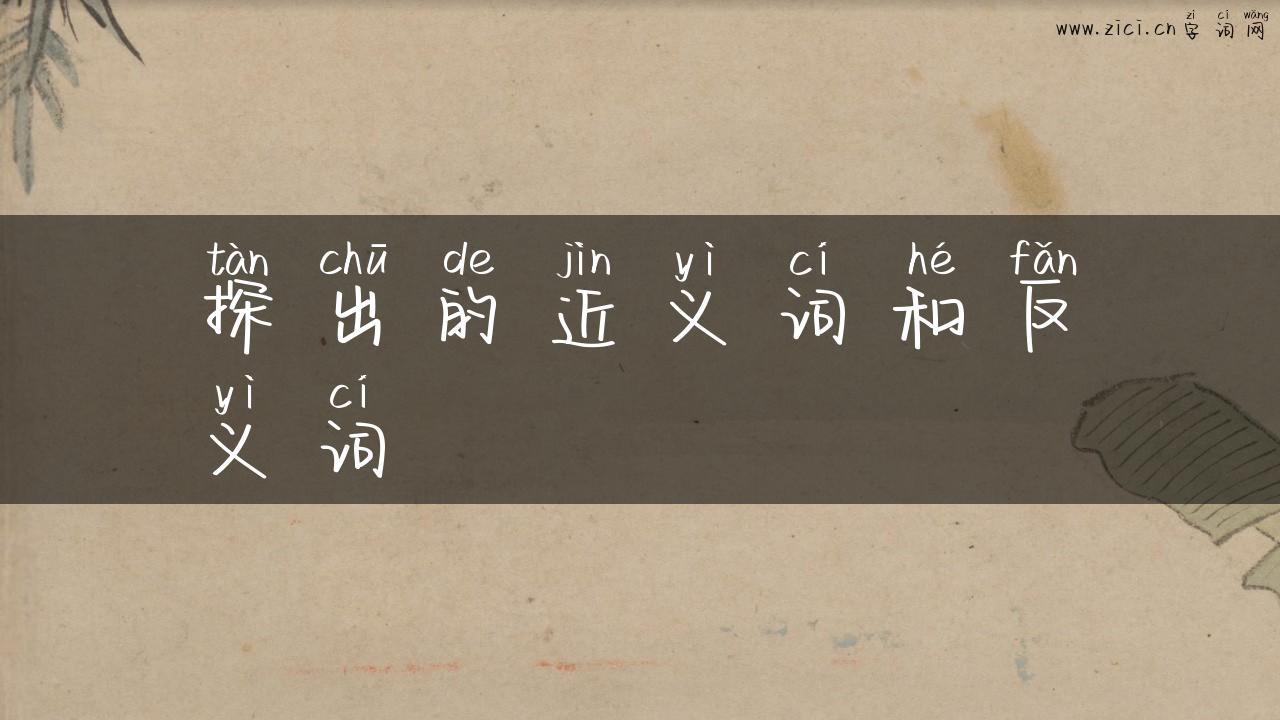 zì cí wǎng
www.zici.cn 字 词 网
tàn chū de jìn yì cí hé fǎn
探 出 的 近 义 词 和 反
yì cí
义 词